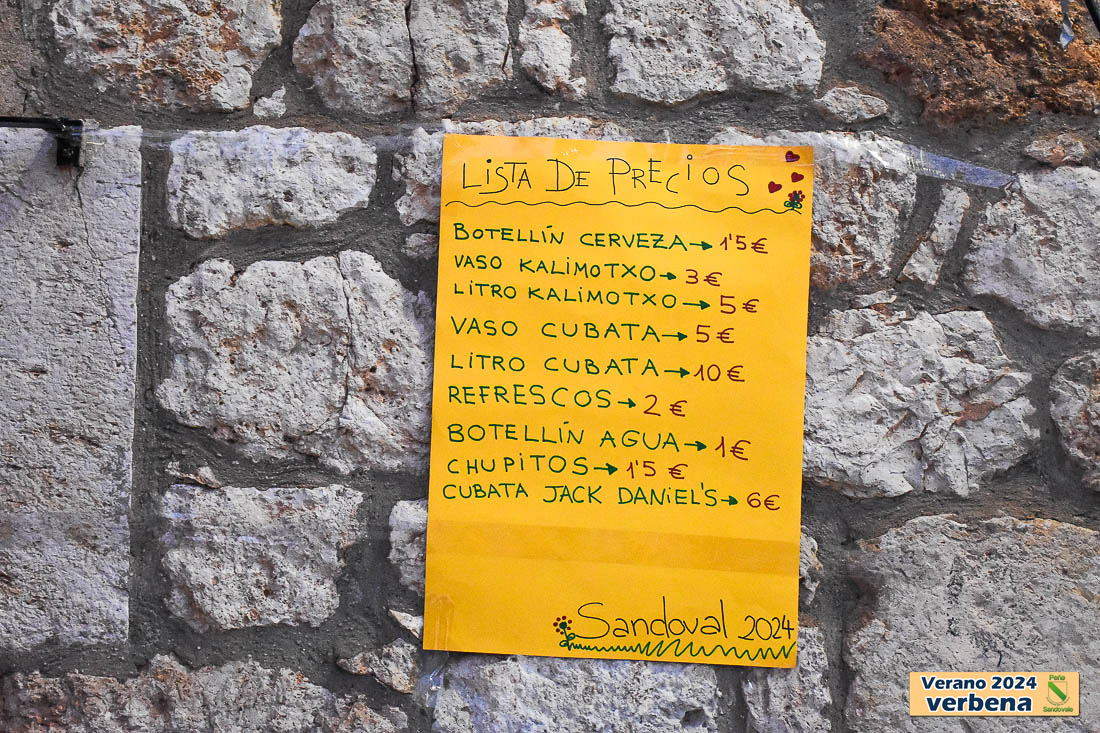 LISTA DE PRECIOS
BOTELLÍN CERVEZA→1'5€
VASO KALIMOTXO→3€
LITRO KALIMOTXO→5€
VASO CUBATA→5€
LITRO CUBATA→10€
REFRESCOS→2€
BOTELLÍN AGUA→1€
CHUPITOS→1'5€
CUBATA JACK DANIEL'S→6€
Sandoval 2024
Verano 2024
verbena
Peña
Sandovale